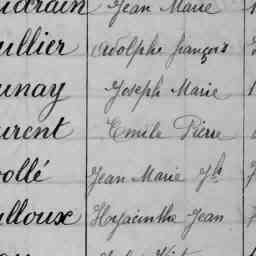 Jean Marie
ullier Adolphe françois
unay Joseph Marie
urent Emile Pierre
ollé Jean Marie
lloux Hyacinthe Jean